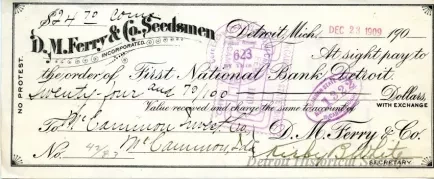 $24 70
D. M. Ferry & Co. Seedsmen
INCORPORATED
Detroit, Mich. DEC 23 1909 190
NO PROTEST.
At sight pay to
the order of First National Bank Detroit
Twenty-four and 70/100 Dollars,
WITH EXCHANGE
Value received and charge the same to account of
To McCammon Invest Co. D. M. Ferry & Co.
No. McCammon, Ida
SECRETARY
623
Detroit Historical